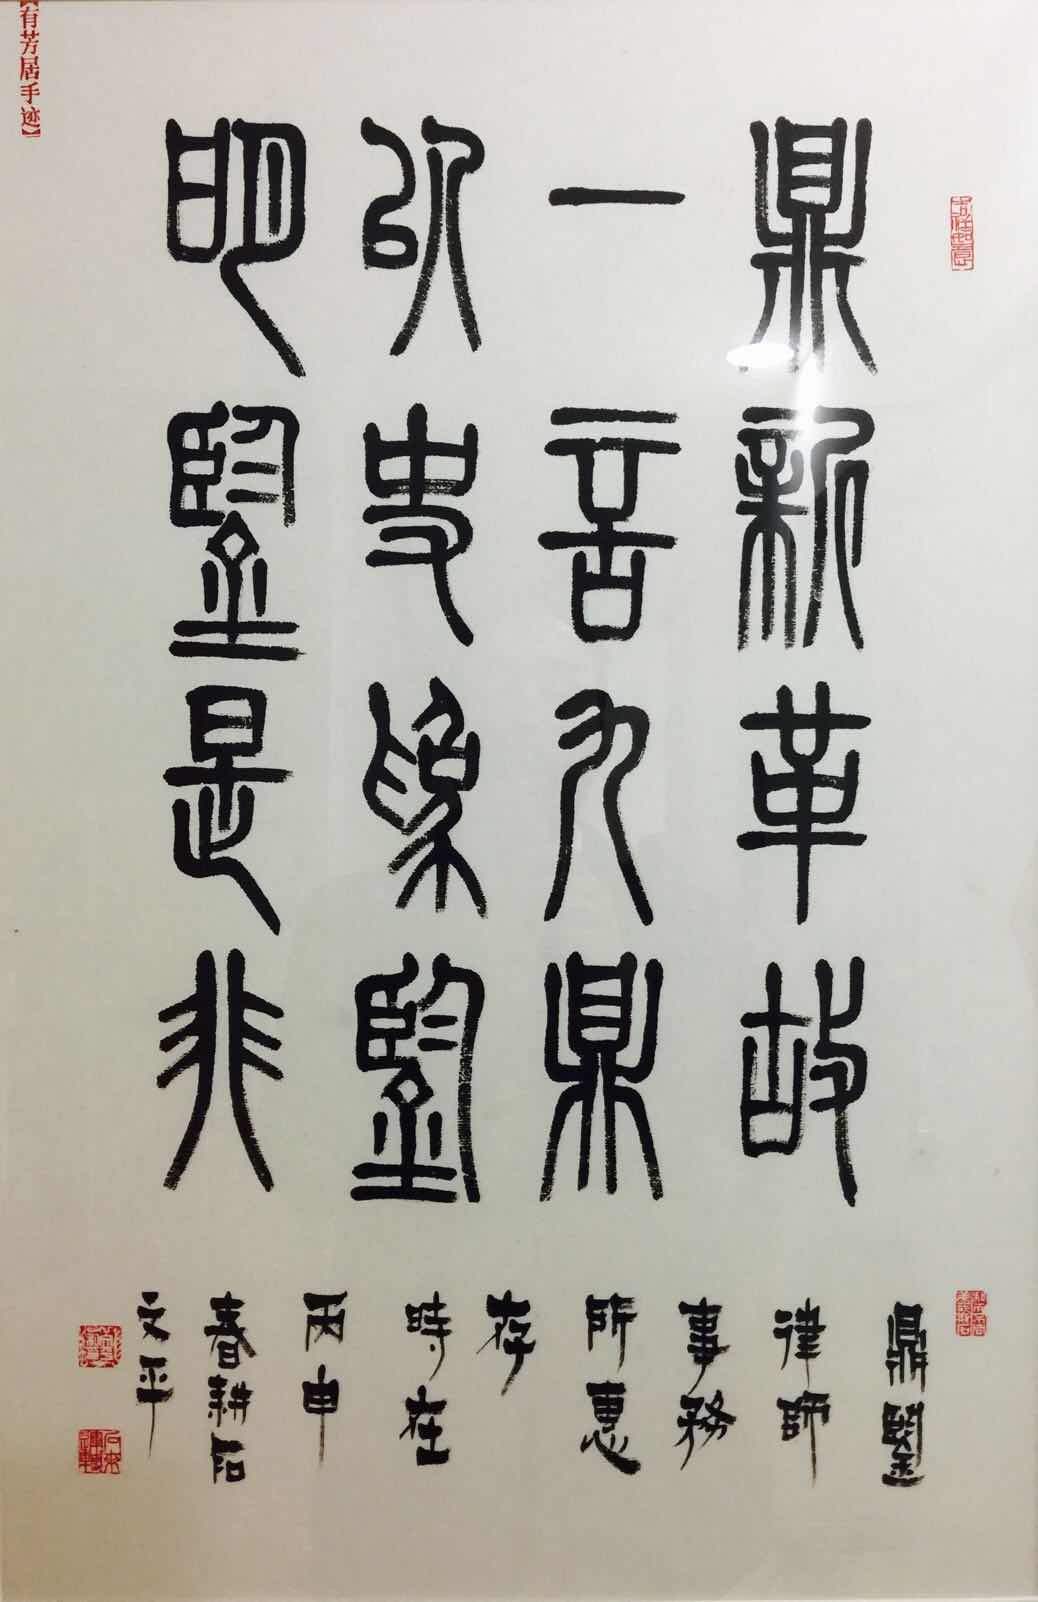 【有芳居手迹】
吉祥如意
鼎新革故
一言九鼎
以史為鑒
明鑒是非
鼎鑒
律師
事務
所惠
存
時在
丙申
春耕石
文平